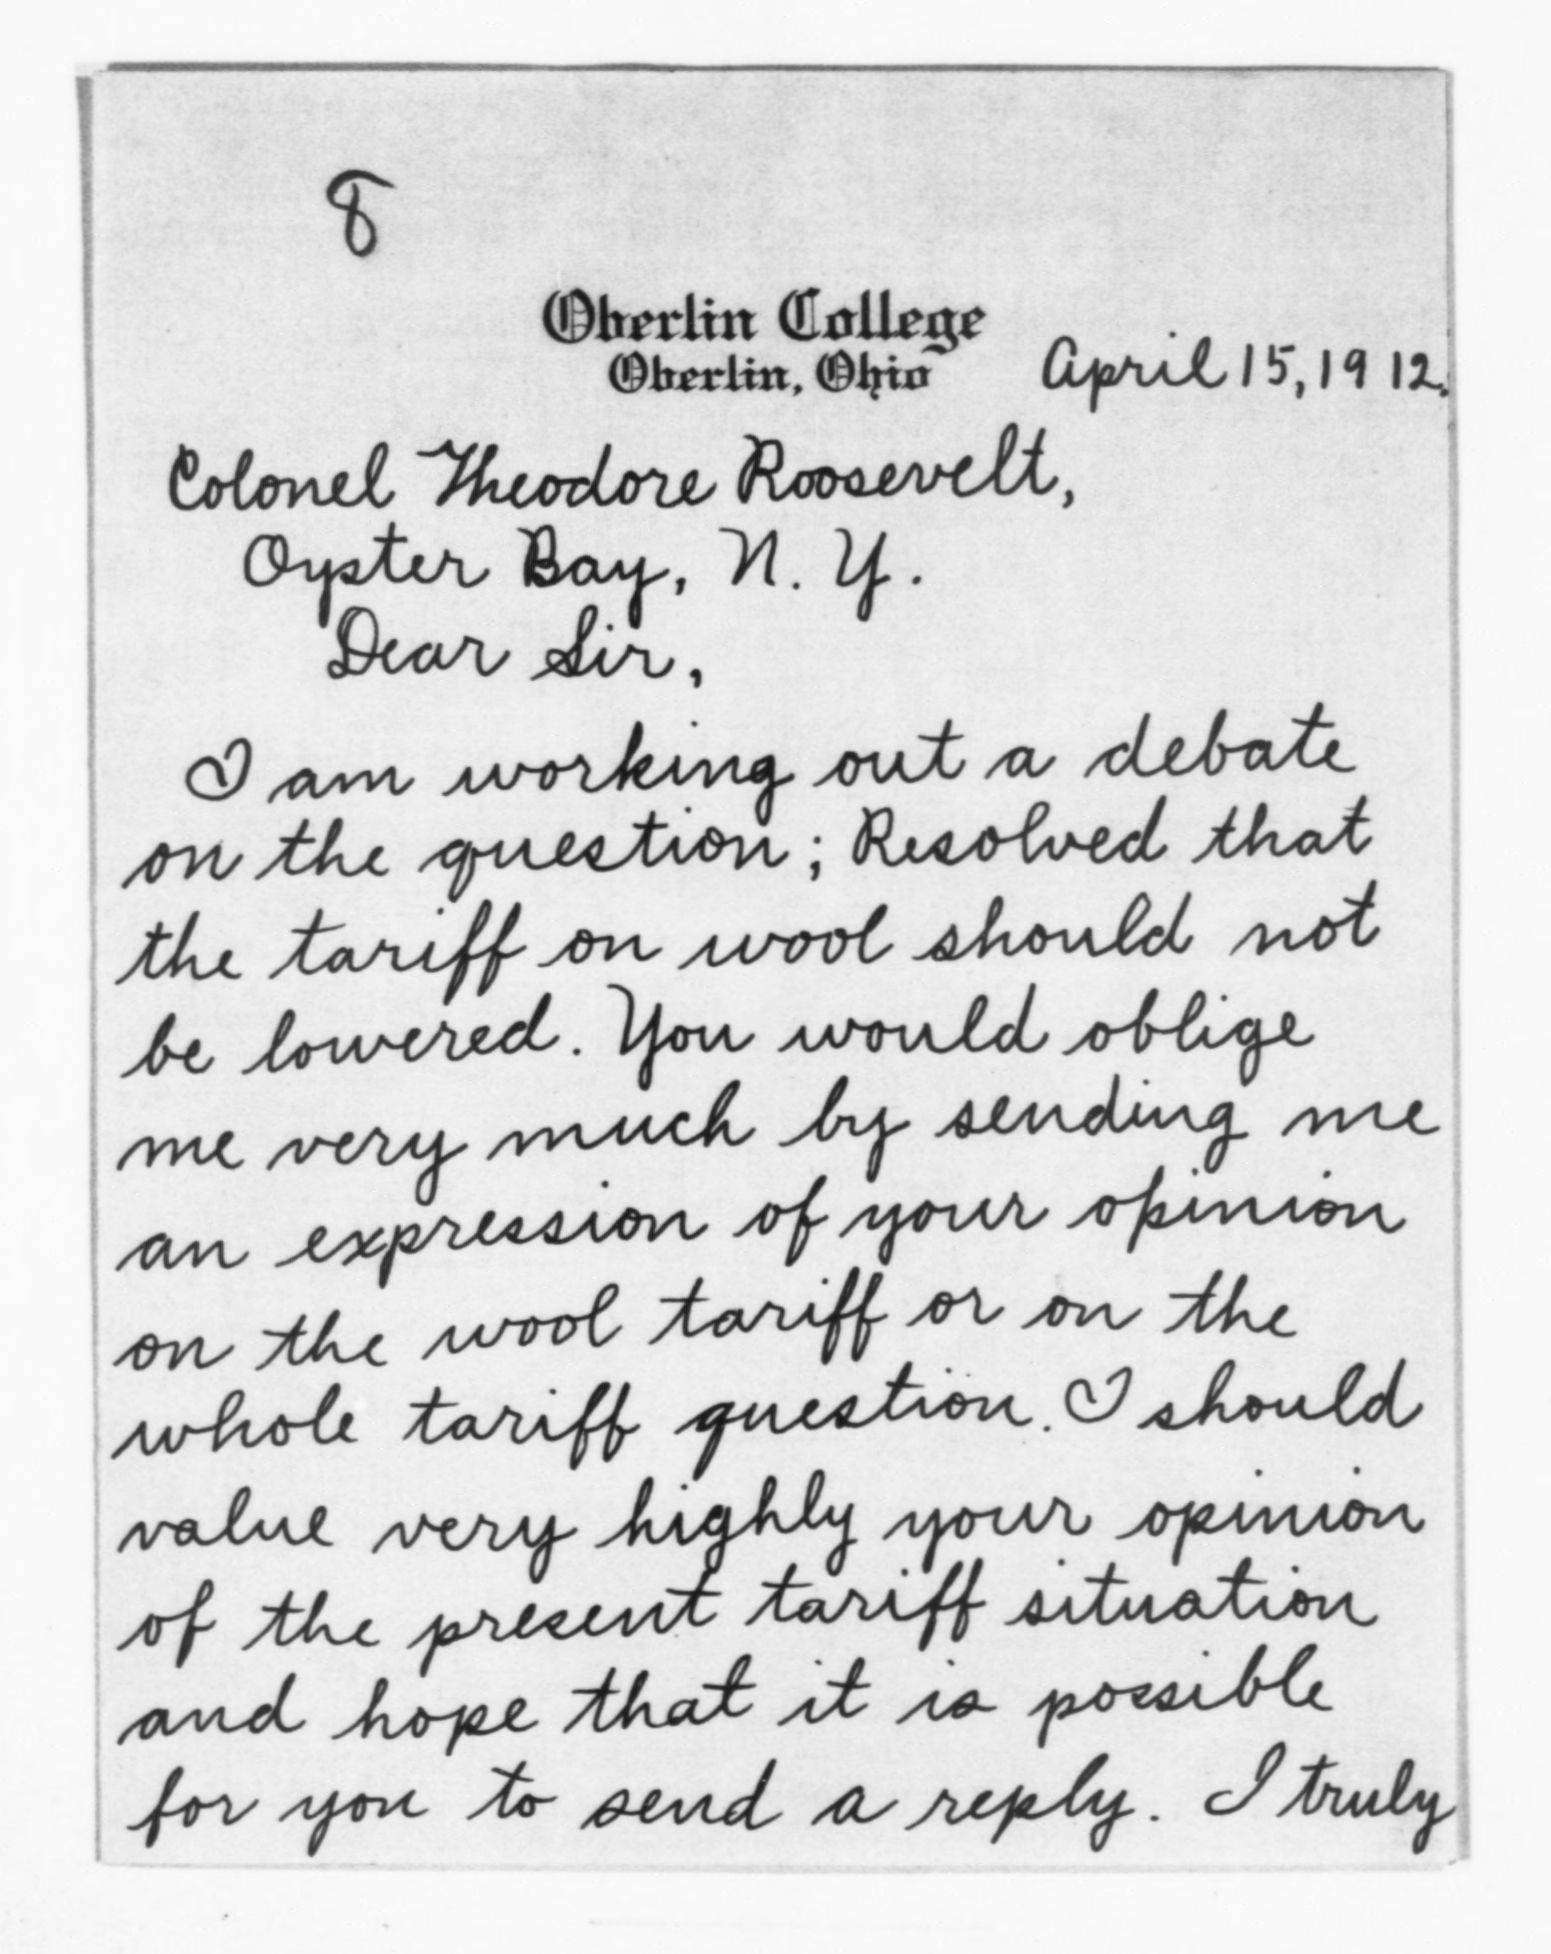 8
Oberlin College
Oberlin, Ohio
April 15, 1912.
Colonel Theodore Roosevelt,
Oyster Bay, N. Y.
Dear Sir,
I am working out a debate
on the question; Resolved that
the tariff on wool should not
be lowered. You would oblige
me very much by sending me
an expression of your opinion
on the wool tariff or on the
whole tariff question. I should
value very highly your opinion
of the present tariff situation
and hope that it is possible
for you to send a reply. I truly